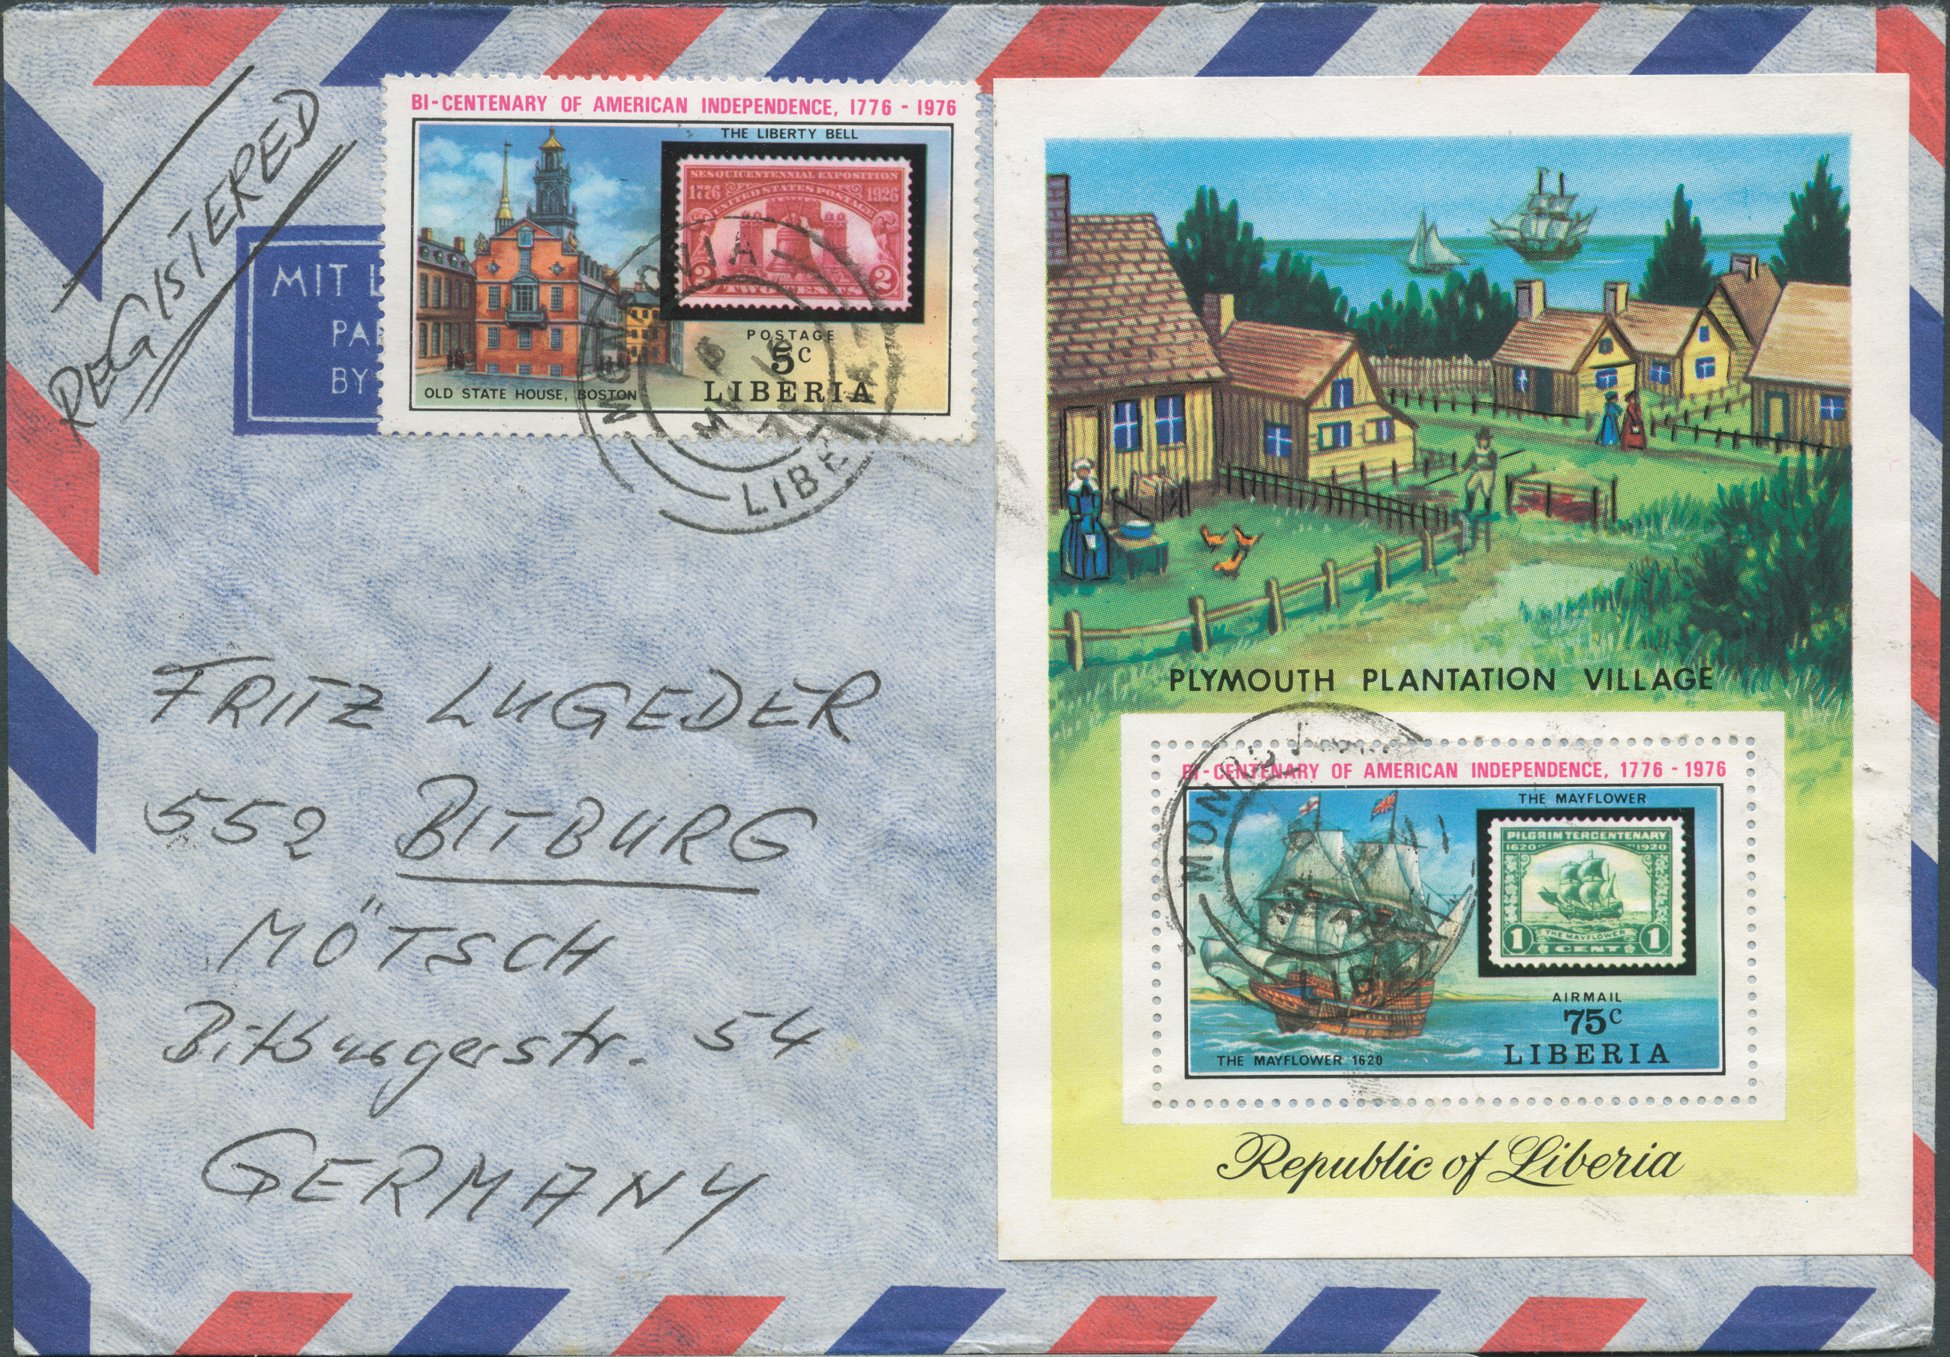 REGISTERED
MIT L
PA
BY
BI-CENTENARY OF AMERICAN INDEPENDENCE, 1776 - 1976
THE LIBERTY BELL
SESQUICENTENNIAL EXPOSITION
1776 UNITED STATES POSTAGE 1926
2 TWO CENTS 2
POSTAGE
5c
LIBERIA
OLD STATE HOUSE, BOSTON
MONROVIA
LIBERIA
FRITZ LUGEDER
552 BITBURG
MÖTSCH
Bitburgerstr. 54
GERMANY
PLYMOUTH PLANTATION VILLAGE
BI-CENTENARY OF AMERICAN INDEPENDENCE, 1776 - 1976
THE MAYFLOWER
PILGRIM TERCENTENARY
1620 1920
THE MAYFLOWER
1 CENT 1
AIRMAIL
75c
LIBERIA
THE MAYFLOWER 1620
MONROV
LIBE
Republic of Liberia